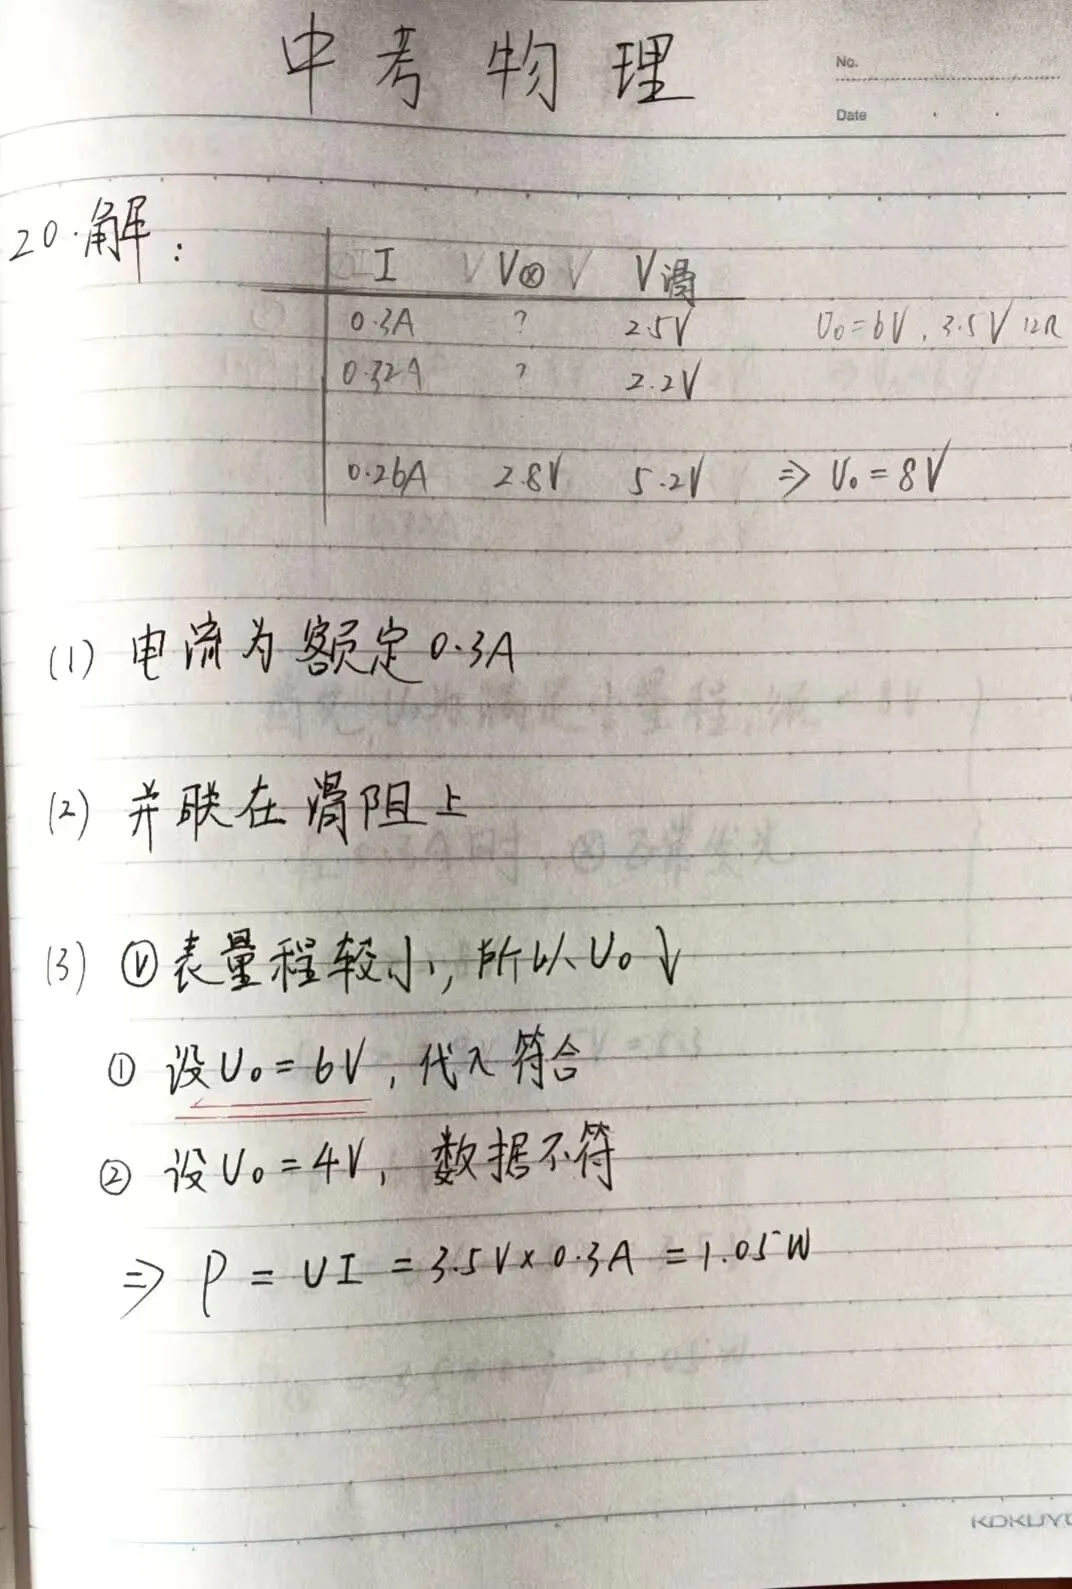 中考物理
No.
Date
20.解:
I V V⊗ V V滑
0.3A ? 2.5V U₀=6V, 3.5V 12Ω
0.32A ? 2.2V
0.26A 2.8V 5.2V ⇒ U₀=8V
(1) 电流为额定0.3A
(2) 并联在滑阻上
(3) Ⓥ表量程较小, 所以U₀↓
① 设U₀=6V, 代入符合
② 设U₀=4V, 数据不符
⇒ P = UI = 3.5V×0.3A = 1.05W
KOKUYO